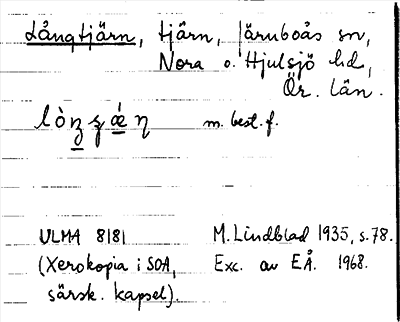 Långtjärn, tjärn, Järnboås sn,
Nora o. Hjulsjö hd,
Ör. län.
m. best. f.
ULMA 8181 M. Lindblad 1935, s. 78.
(Xerokopia i SOA, Exc. av EÅ. 1968.
särsk. kapsel).